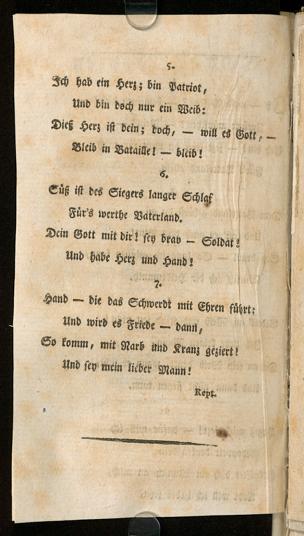 5.
Ich hab ein Herz; bin Patriot,
Und bin doch nur ein Weib:
Dieß Herz ist dein; doch, — will es Gott, —
Bleib in Bataille! — bleib!
6.
Süß ist des Siegers langer Schlaf
Für's werthe Vaterland.
Dein Gott mit dir! sey brav — Soldat!
Und habe Herz und Hand!
7.
Hand — die das Schwerdt mit Ehren führt:
Und wird es Friede — dann,
So komm, mit Narb und Kranz geziert!
Und sey mein lieber Mann!